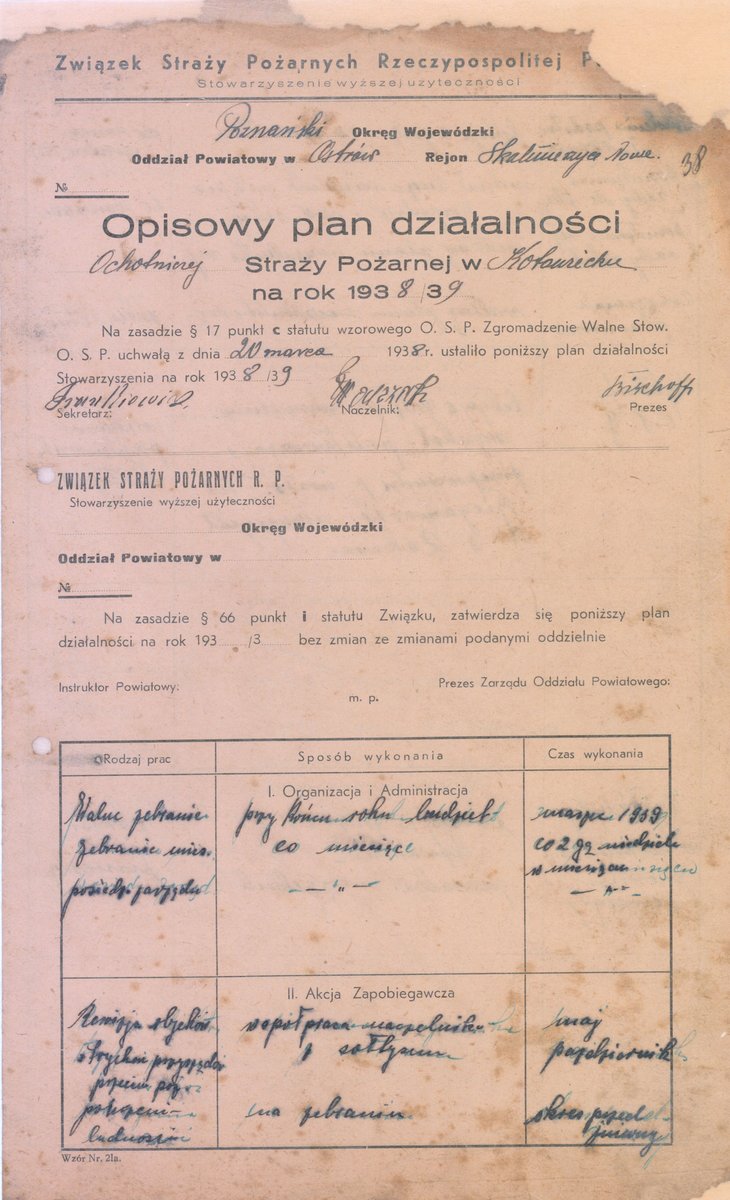 Związek Straży Pożarnych Rzeczypospolitej P
Stowarzyszenie wyższej użyteczności
Poznański Okręg Wojewódzki
Oddział Powiatowy w Ostrów Rejon Skalmierzyce Nowe.
38
№
Opisowy plan działalności
Ochotniczej Straży Pożarnej w
na rok 1938/39
Na zasadzie § 17 punkt c statutu wzorowego O. S. P. Zgromadzenie Walne Stow.
O. S. P. uchwałą z dnia 20 marca 1938 r. ustaliło poniższy plan działalności
Stowarzyszenia na rok 1938/39
Bischoff
Sekretarz: Naczelnik: Prezes
ZWIĄZEK STRAŻY POŻARNYCH R. P.
Stowarzyszenie wyższej użyteczności
Okręg Wojewódzki
Oddział Powiatowy w
№
Na zasadzie § 66 punkt i statutu Związku, zatwierdza się poniższy plan
działalności na rok 193 /3 bez zmian ze zmianami podanymi oddzielnie
Instruktor Powiatowy: Prezes Zarządu Oddziału Powiatowego:
m. p.
Rodzaj prac Sposób wykonania Czas wykonania
I. Organizacja i Administracja
Walne zebranie przy końcu roku 1939
zebranie mies. co miesiąc co 2gą niedziele
w miesiącu
posiedz. zarządu — " — — " —
II. Akcja Zapobiegawcza
Rewizja współpraca naczelnika maj
z sołtysem październik
na zebraniu okres przed
ludności żniwny
Wzór Nr. 21a.